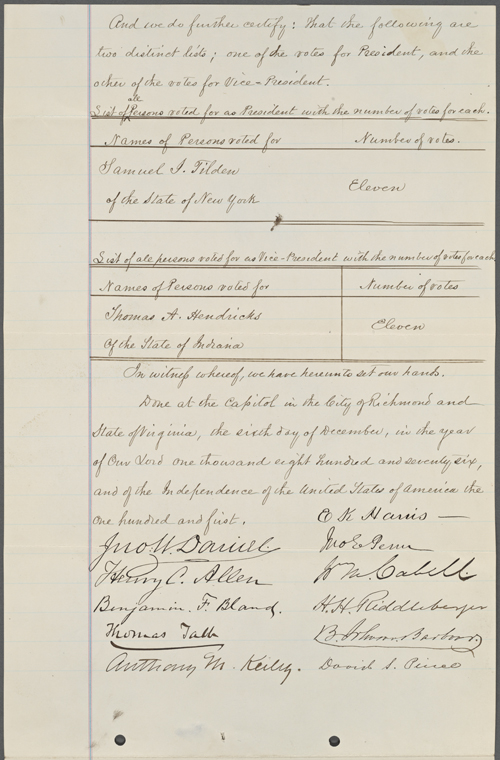 And we do further certify: That the following are
two distinct lists; one of the votes for President, and the
other of the votes for Vice-President.
List of all Persons voted for as President with the number of votes for each.
Names of Persons voted for Number of votes.
Samuel J. Tilden
of the State of New York Eleven
List of all persons voted for as Vice-President with the number of votes for each
Names of Persons voted for Number of votes
Thomas A. Hendricks
Of the State of Indiana Eleven
In witness whereof, we have hereunto set our hands.
Done at the Capitol in the City of Richmond and
State of Virginia, the sixth day of December, in the year
of Our Lord one thousand eight hundred and seventy six,
and of the Independence of the United States of America the
one hundred and first. C K Harris
Jno. W. Daniel. Jno E Penn
Henry C. Allen Wm M. Cabell
Benjamin F. Bland. H. H. Riddleberger
Thomas Tabb B. Johnson Barbour
Anthony M. Keiley. David S. Pierce